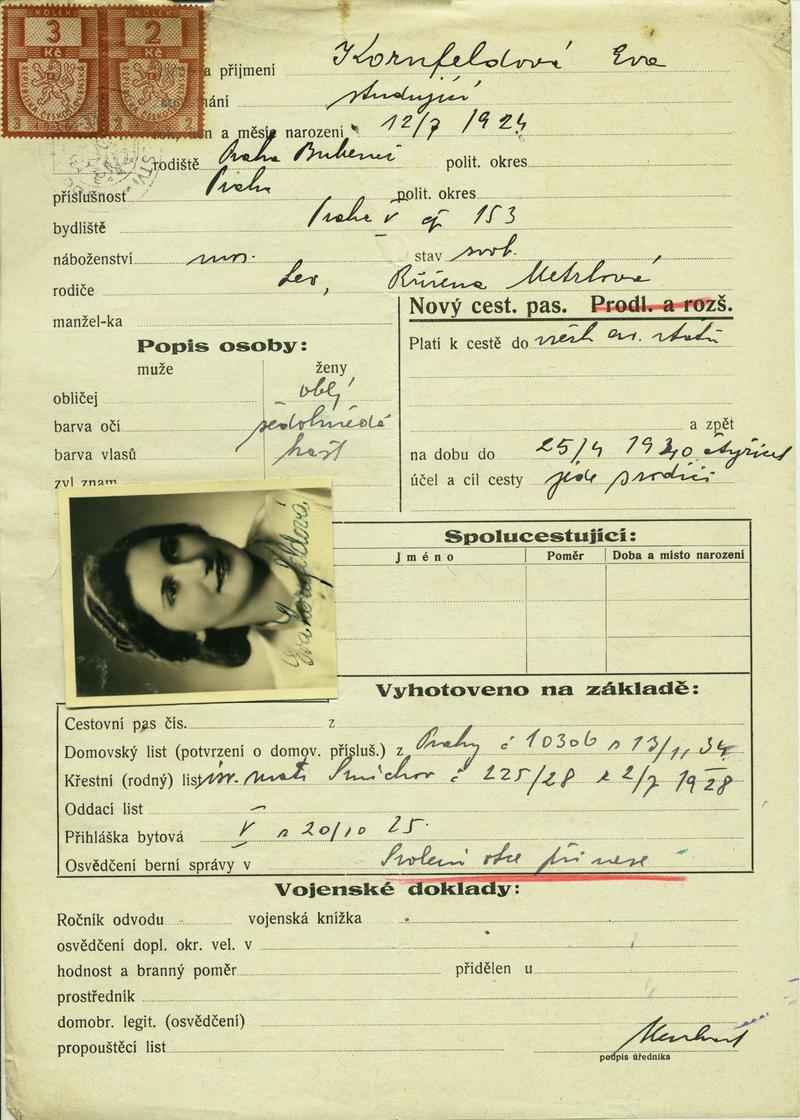 KOLEK KOLEK
3 2
Kč Kč
a příjmení Kornfeldová Eva
studující
a měsíc narození 12/7 1924
rodiště Praha Bubeneč polit. okres
příslušnost Praha polit. okres
bydliště Praha V čp 153
náboženství stav svob.
rodiče Leo, Růžena Metzlová
manžel-ka
Nový cest. pas. Prodl. a rozš.
Platí k cestě do všech ev. států
Popis osoby:
muže ženy
obličej oblý
barva očí šedohnědá
barva vlasů kašt
zvl znam
a zpět
na dobu do 25/4 1940 čtyřicet
účel a cíl cesty jede s rodiči
Eva Kornfeldová
Spolucestující:
Jméno Poměr Doba a místo narození
Vyhotoveno na základě:
Cestovní pas čís. z
Domovský list (potvrzení o domov. přísluš.) z Prahy č 10306 z 13/11 34
Křestní (rodný) list izr. mat. Smíchov č 225/28 z 2/7 1928
Oddací list —
Přihláška bytová V z 20/10 25.
Osvědčení berní správy v otce přinese
Vojenské doklady:
Ročník odvodu vojenská knížka
osvědčení dopl. okr. vel. v
hodnost a branný poměr přidělen u
prostředník
domobr. legit. (osvědčení)
propouštěcí list
podpis úředníka